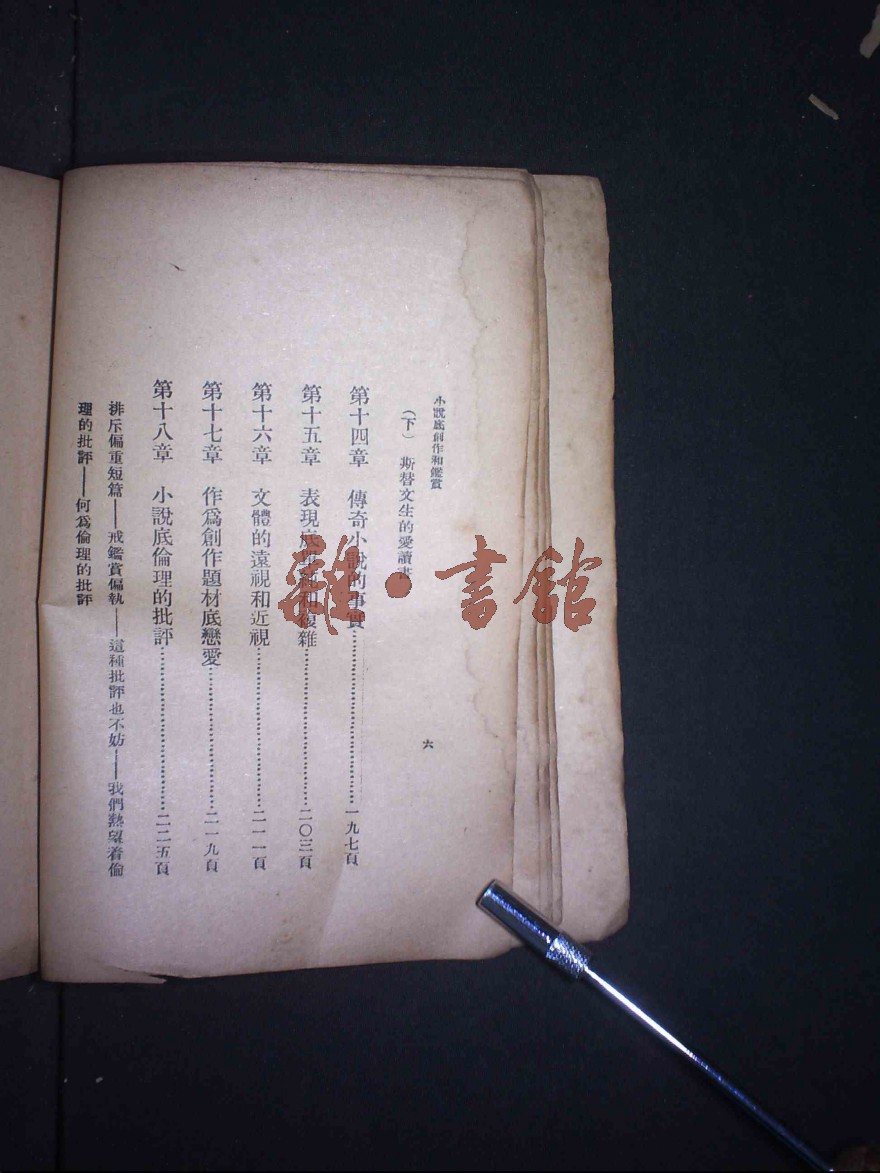 小說底創作和鑑賞
六
(下) 斯替文生的愛讀書
第十四章 傳奇小說的事實……………………一九七頁
第十五章 表現底單純和複雜……………………二〇三頁
第十六章 文體的遠視和近視……………………二一一頁
第十七章 作爲創作題材底戀愛……………………二一九頁
第十八章 小說底倫理的批評……………………二二五頁
排斥偏重短篇——戒鑑賞偏執——這種批評也不妨——我們熱望着倫
理的批評——何爲倫理的批評
雜·書館